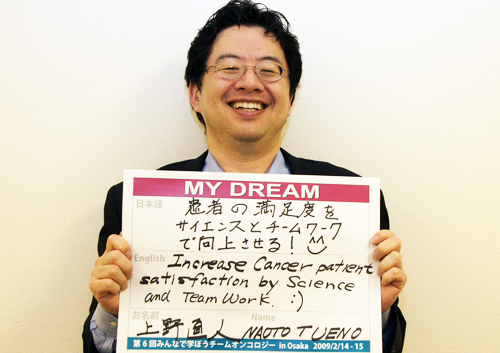 MY DREAM
日本語
患者の満足度を
サイエンスとチームワーク
で向上させる! ^^
English
Increase Cancer patient
satisfaction by Science
and Team Work. :)
お名前 Name
上野直人 NAOTO T UENO
第6回みんなで学ぼうチームオンコロジー in Osaka 2009/2/14-15